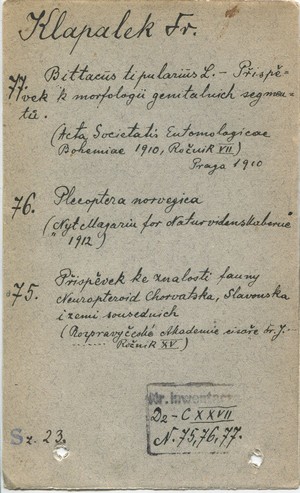 Klapalek Fr.
77. Bittacus tipularius L. - Příspě-
vek k morfologii genitalnich segmen-
tů.
(Acta Societatis Entomologicae
Bohemiae 1910, Ročnik VII)
Praga 1910
76. Plecoptera norvegica
("Nyt Magazin for Naturvidenskaberne"
1912)
75. Přispěvek ke znalosti fauny
Neuropteroid Chorvatska, Slavonska
i zemi sousednich
(Rozpravy České Akademie cisaře Fr. J.
Ročnik XV)
Nr. inwentarz
Dz - C XXVII
N. 75, 76, 77.
Sz. 23.